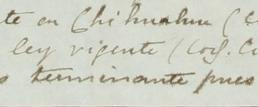 te en Chihuahua (
ley vigente (Cod. Ci
terminante pues